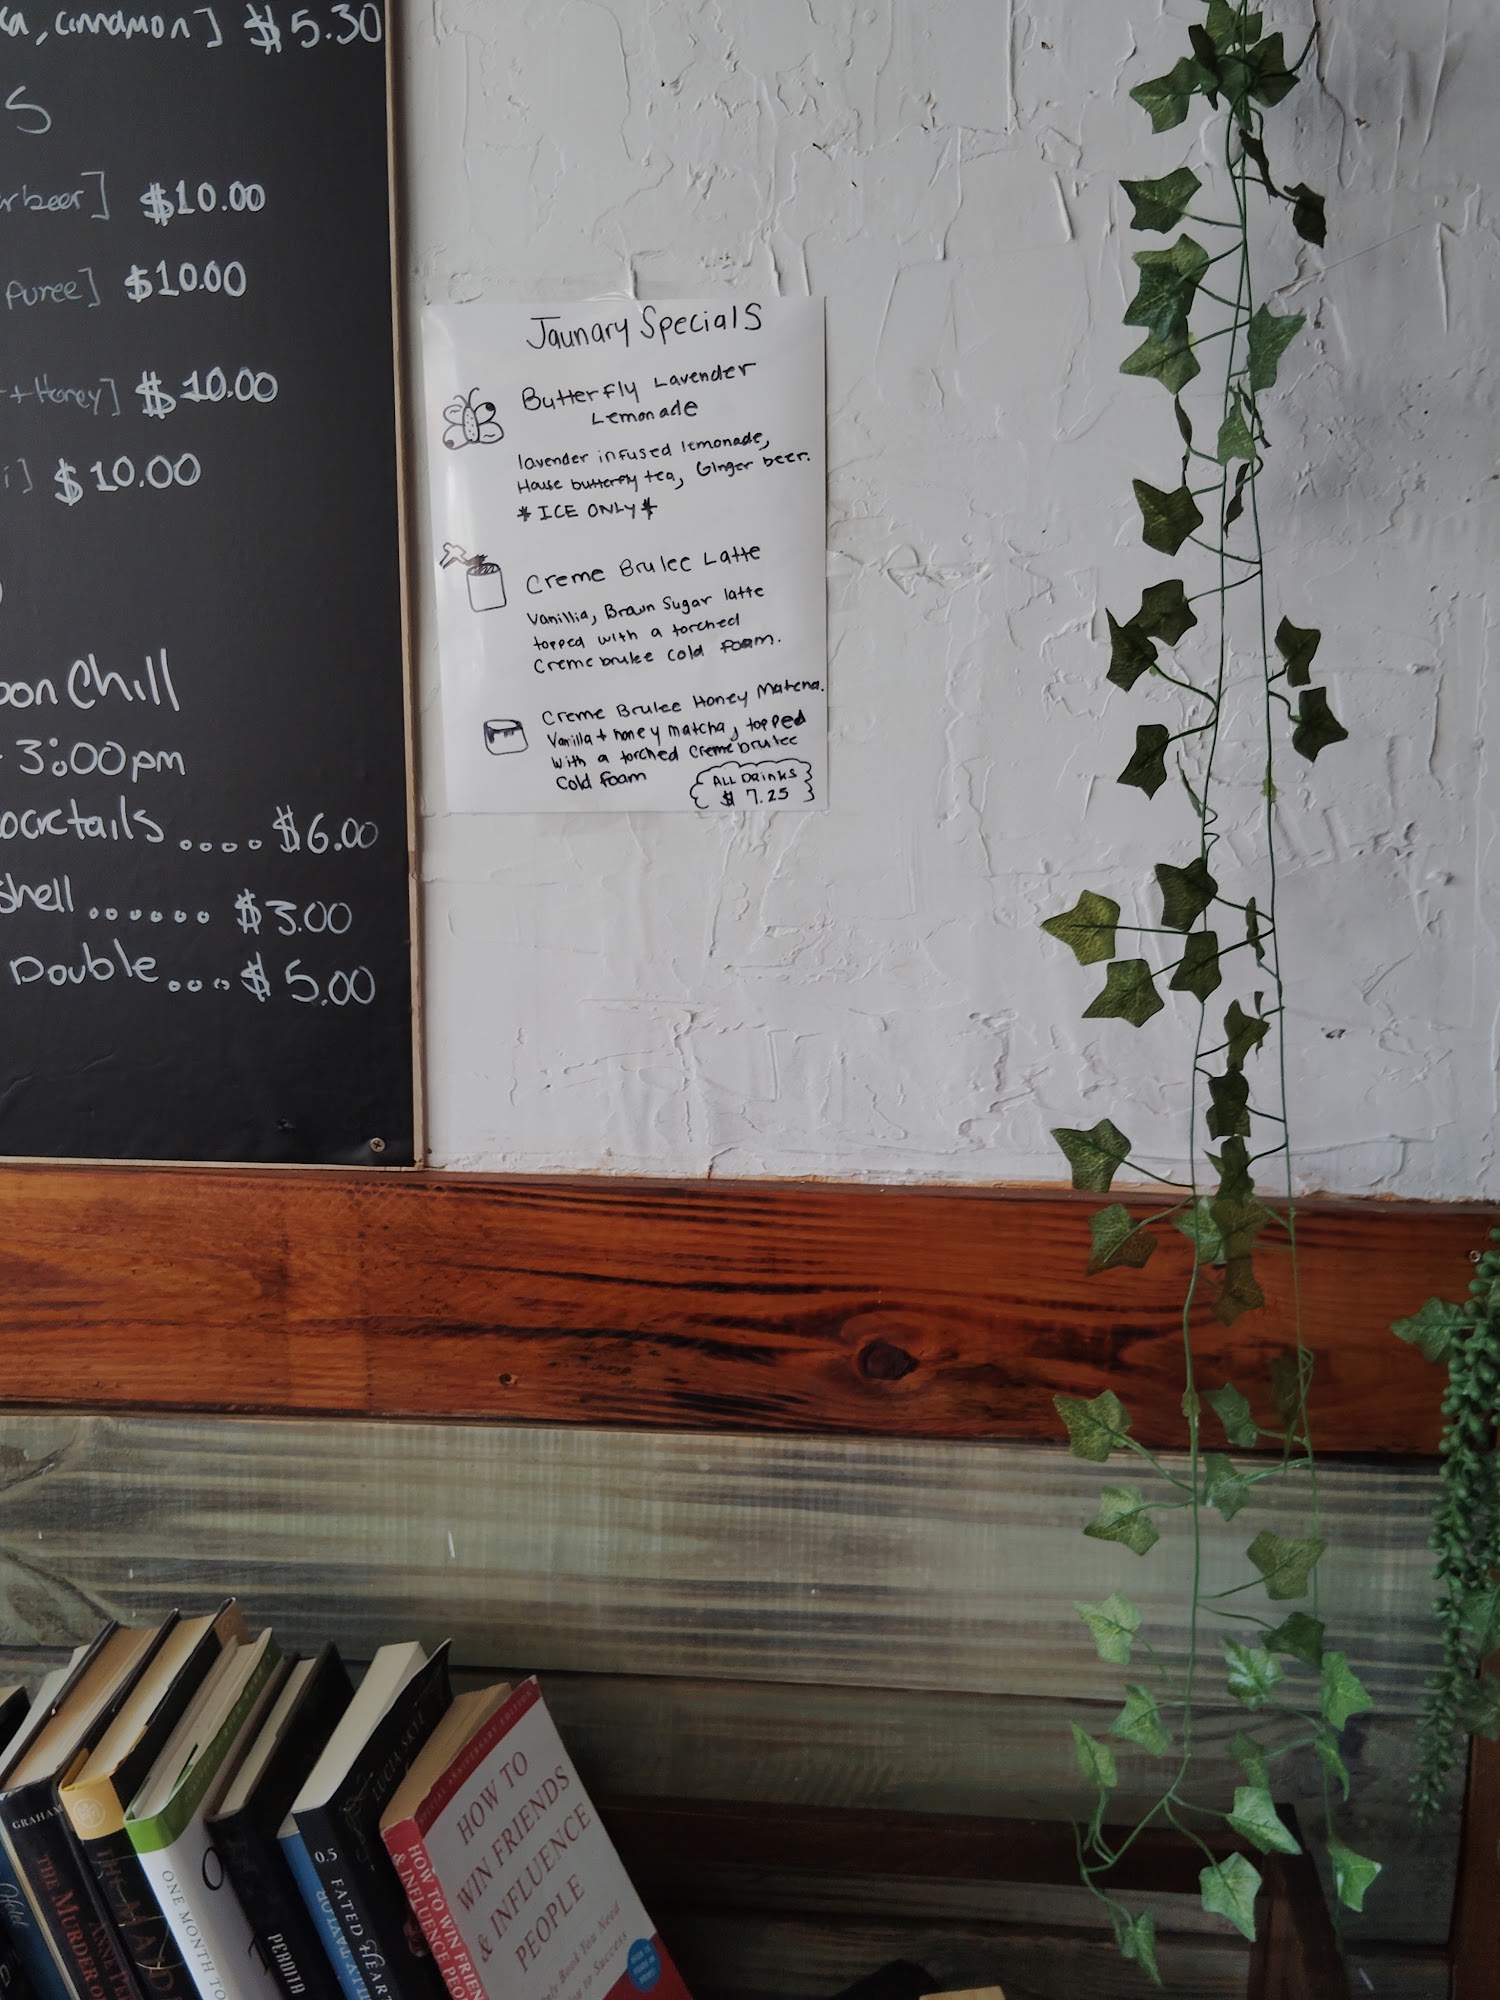 , cinnamon] $5.30
S
beer] $10.00
puree] $10.00
+Honey] $10.00
i] $10.00
oon Chill
3:00pm
ocktails .... $6.00
Shell ...... $3.00
Double .... $5.00
Jaunary Specials
Butterfly Lavender
Lemonade
lavender infused lemonade,
House butterfly tea, Ginger beer.
* ICE ONLY *
Creme Brulee Latte
Vanillia, Brown Sugar latte
topped with a torched
Creme brulee Cold foam.
Creme Brulee Honey Matcha.
Vanilla + honey matcha, topped
with a torched Creme brulee
Cold foam
ALL Drinks
$ 7.25
GRAHAM
THE MURDER OF
ANNE
ONE MONTH TO
PERDITA
0.5 FATED HEART
LUCIA
HOW TO WIN FRIEN
& INFLUENCE PEO
SPECIAL ANNIVERSARY EDITION
HOW TO
WIN FRIENDS
& INFLUENCE
PEOPLE
Book You Need
to Success